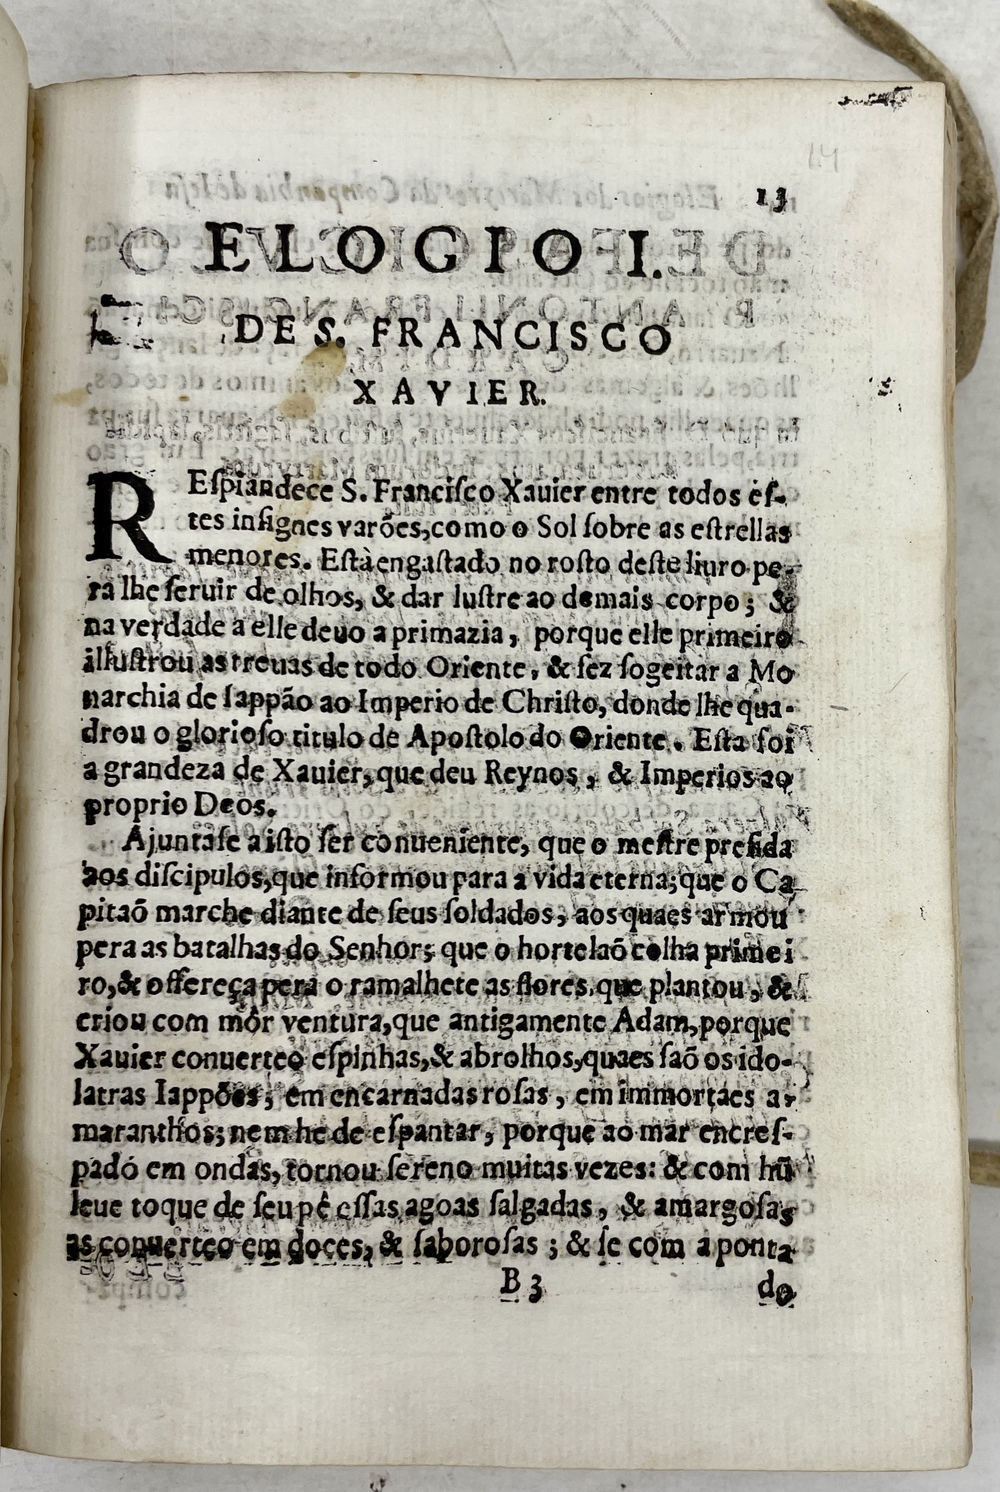 13
ELOGIO I.
DE S. FRANCISCO
XAVIER.
REſplandece S. Franciſco Xauier entre todos eſ-
tes inſignes varões, como o Sol ſobre as eſtrellas
menores. Eſtà engaſtado no roſto deſte liuro pe-
ra lhe ſeruir de olhos, & dar luſtre ao demais corpo; &
na verdade a elle deuo a primazia, porque elle primeiro
illuſtrou as treuas de todo Oriente, & fez ſogeitar a Mo
narchia de Iappão ao Imperio de Chriſto, donde lhe qua-
drou o glorioſo titulo de Apoſtolo do Oriente. Eſta foi
a grandeza de Xauier, que deu Reynos, & Imperios ao
proprio Deos.
Ajuntaſe a iſto ſer conueniente, que o meſtre preſida
aos diſcipulos, que informou para a vida eterna; que o Ca
pitaõ marche diante de ſeus ſoldados, aos quaes armou
pera as batalhas do Senhor; que o hortelaõ colha primei
ro, & offereça pera o ramalhete as flores que plantou, &
criou com môr ventura, que antigamente Adam, porque
Xauier conuerteo eſpinhas, & abrolhos, quaes ſaõ os ido-
latras Iappões, em encarnadas roſas, em immortaes a-
maranthos; nem he de eſpantar, porque ao mar encreſ-
padó em ondas, tornou ſereno muitas vezes: & com hũ
leue toque de ſeu pê eſſas agoas ſalgadas, & amargoſas
as conuerteo em doces, & ſaboroſas; & ſe com a ponta
B 3 do